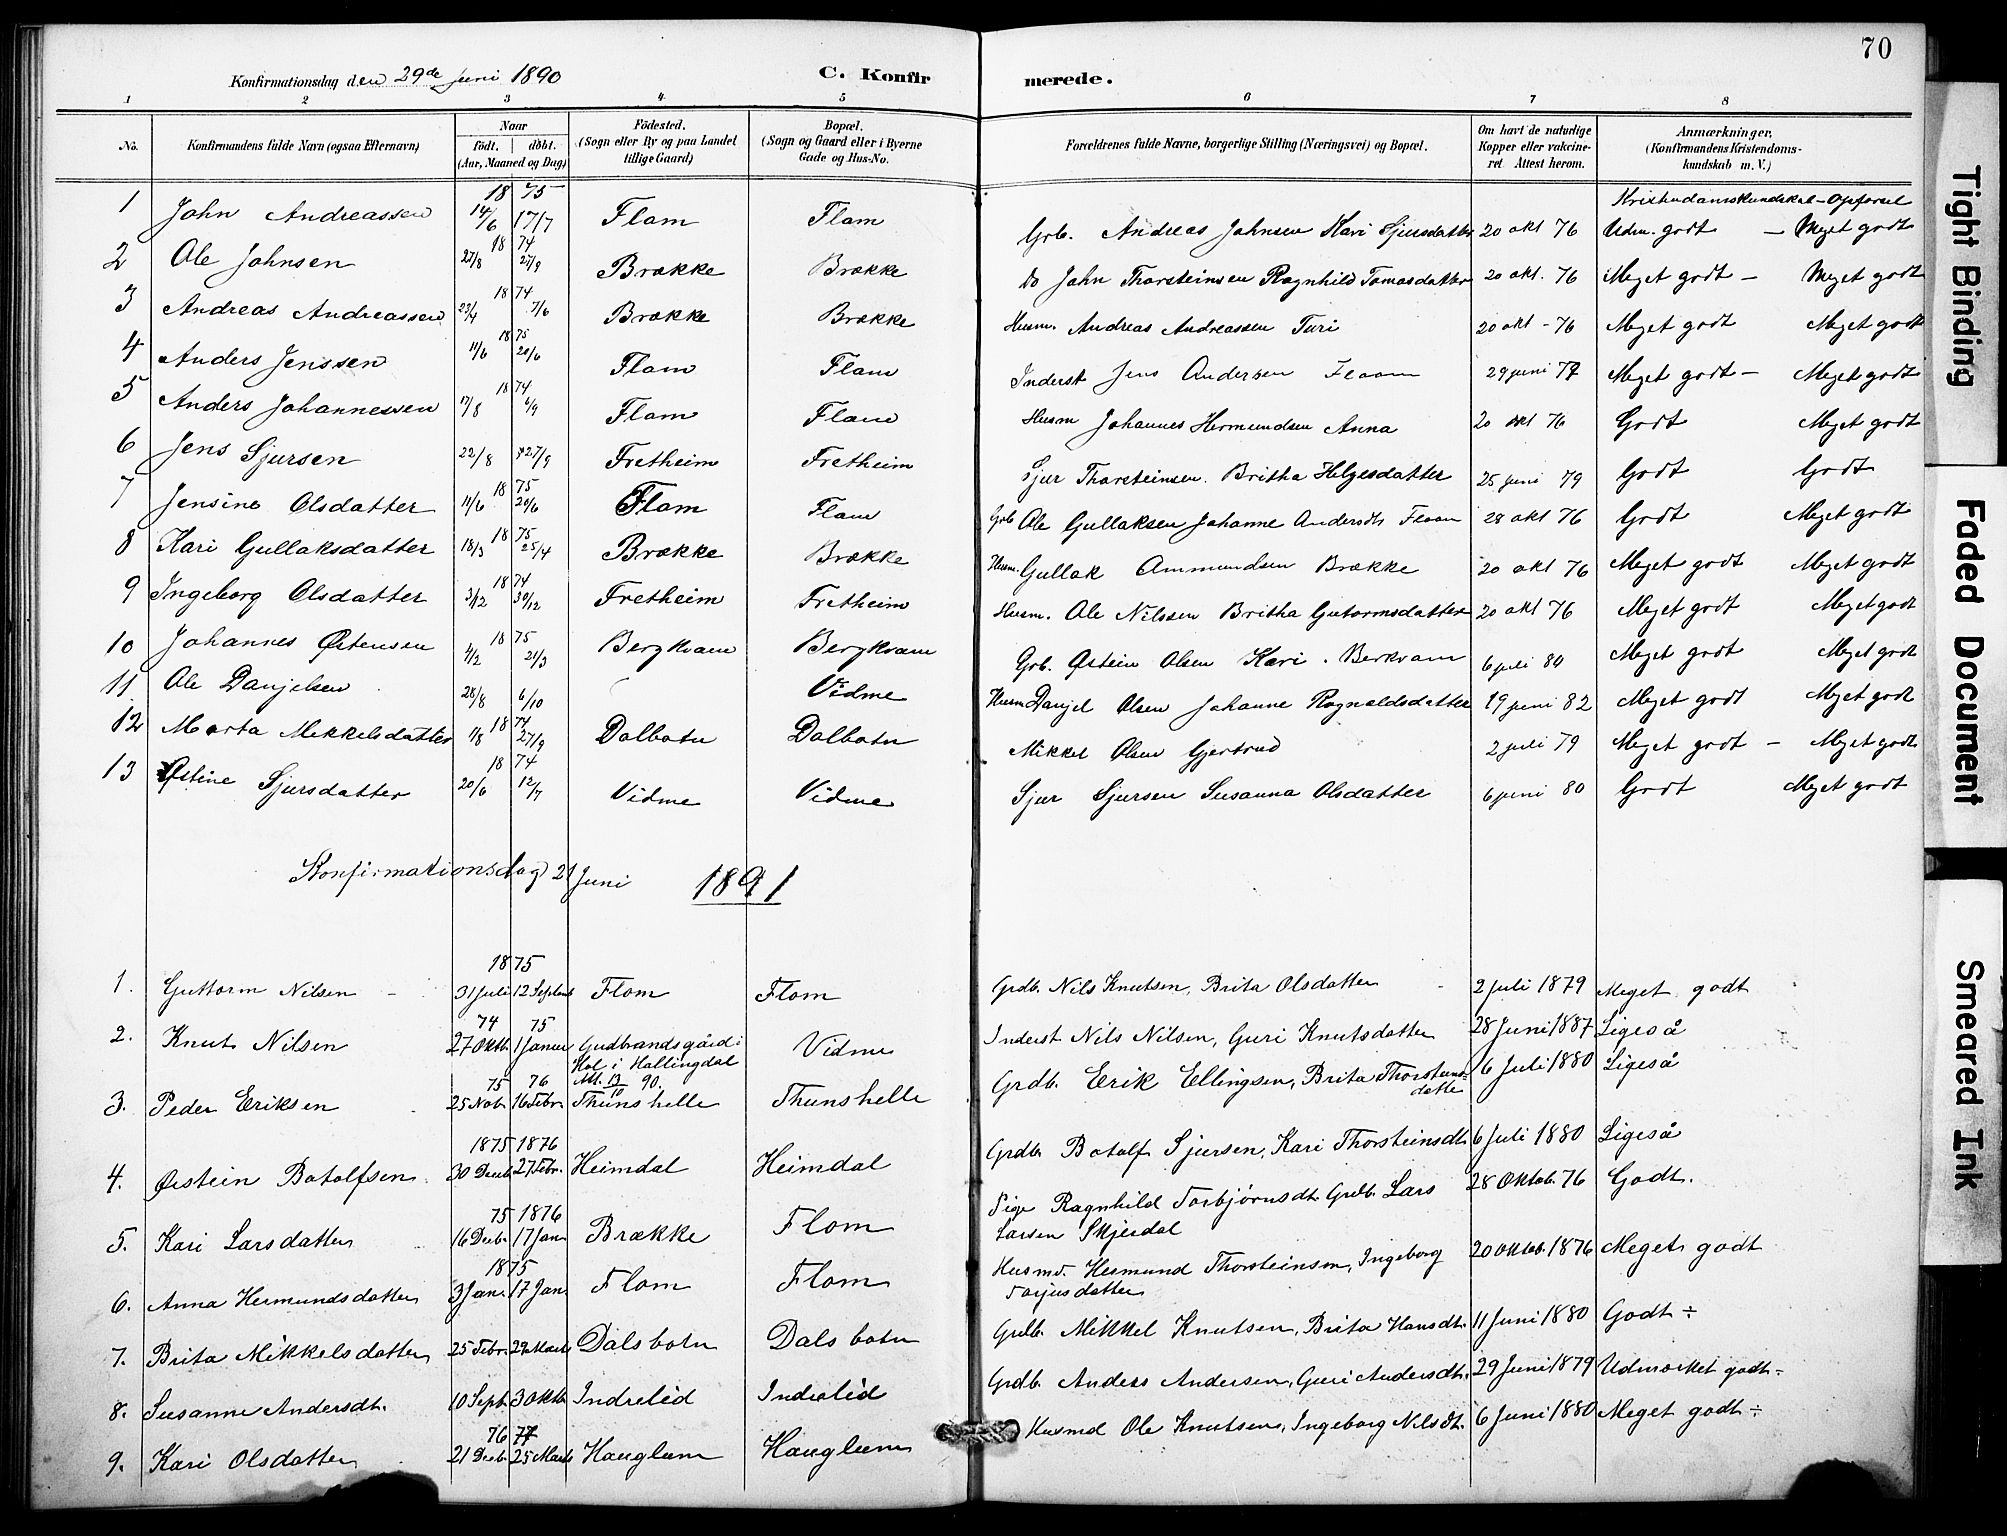 70
Konfirmationsdag den 29de Juni 1890 C. Konfirmerede.
1 2 3 4 5 6 7 8
No. Konfirmandens fulde Navn (ogsaa Efternavn) Naar født. døbt. (Aar, Maaned og Dag) Fødested. (Sogn eller By og paa Landet tillige Gaard) Bopæl. (Sogn og Gaard eller i Byerne Gade og Hus-No. Forældrenes fulde Navne, borgerlige Stilling (Næringsvei) og Bopæl. Om havt de naturlige Kopper eller vakcineret Attest herom. Anmærkninger, (Konfirmandens Kristendomskundskab m. V.)
Kristendomskundskab - Opførsel
1 John Andreassen 1875 14/6 17/7 Flam Flam Grb. Andreas Johnsen Kari Sjursdatter 20 okt 76 Udm. godt - Meget godt
2 Ole Johnsen 1874 27/8 27/9 Brække Brække Do John Thorsteinsen Ragnhild Tomasdatter 20 okt. 76 Meget godt - Meget godt
3 Andreas Andreassen 1874 23/4 7/6 Brække Brække Husm. Andreas Andreassen Turi 20 okt - 76 Meget godt Meget godt
4 Anders Jenssen 1875 11/6 20/6 Flam Flam Inderst Jens Andersen Flaam 29 juni 77 Meget godt - Meget godt
5 Anders Johannessen 1874 17/8 6/9 Flam Flam Husm Johannes Hermundsen Anna 20 okt 76 Godt Meget godt
6 Jens Sjursen 22/8 27/9 Fretheim Fretheim Sjur Thorsteinsen. Britha Helgesdatter 25 juni 79 Godt Godt
7 Jensine Olsdatter 1875 11/6 20/6 Flam Flam Grb Ole Gullaksen Johanne Andersdtr Flaam 28 okt 76 Godt Meget godt
8 Kari Gullaksdatter 1875 18/3 25/4 Brække Brække Husm. Gullak Ammundsen Brække 20 okt 76 Meget godt Meget godt
9 Ingeborg Olsdatter 1874 3/12 30/12 Fretheim Fretheim Husm. Ole Nilssen Britha Gutormsdatter 20 okt 76 Meget godt Meget godt
10 Johannes Østensen 1875 4/2 21/3 Bergkvam Bergkvam Grb. Østein Olsen Kari. Berkvam 6 juli 80 Meget godt Meget godt
11. Ole Danjelsen 28/8 6/10 Vidme Husm Danjel Olsen Johanne Ragnaldsdatter 19 juni 82 Meget godt Meget godt
12 Marta Mekkelsdatter 1874 1/8 27/9 Dalbotn Dalbotn Mikkel Olsen Gjertrud 2 juli 79 Meget godt - Meget godt
13 Østine Sjursdatter 1874 20/6 12/7 Vidme Vidme Sjur Sjursen Susanna Olsdatter 6 juni 80 Godt Meget godt
Konfirmationsdag 21 Juni 1891
1. Guttorm Nilsen 1875 31 Juli 12 Septemb Flom Flom Grdb. Nils Knutsen, Brita Olsdatter 2 Juli 1879 Meget godt
2. Knut Nilsen 74 75 27 Oktb. 1 Januar Gudbrandsgård i Hol i Hallingdal Att. 13/10 90. Vidme Inderst Nils Nilsen, Guri Knutsdatter 28 Juni 1887 Ligeså
3. Peder Eriksen 75 76 25 Nob. 16 Febr. Thunshelle Thunshelle Grdb. Erik Ellingsen, Brita Thorsteinsdatter 6 Juli 1880 Ligeså
4. Østein Botolfsen 1875 1876 30 Decb. 27 Febr. Heimdal Heimdal Grdb. Botolf Sjursen, Kari Thorsteinsdt. 6 Juli 1880 Ligeså
5. Kari Larsdatter 75 1876 16 Decb. 17 Jan. Brække Flom Pige Ragnhild Torbjørnsdt. Grdb. Lars Larsen Skjerdal 28 Oktob. 76 Godt.
6. Anna Hermundsdatter 1875 3 Jan. 17 Jan. Flom Flom Husmd. Hermund Thorsteinsen, Ingeborg Torjusdatter 20 Oktob. 1876 Meget godt
7. Brita Mikkelsdatter 25 Febr. 29 Marts Dalsbotn Dalsbotn Grdb. Mikkel Knutsen, Brita Hansdt. 11 Juni 1880 Godt ÷
8. Susanne Andersdt. 10 Sept. 3 Oktb. Indrelid Indrelid Grdb. Anders Andersen, Guri Andersdt. 29 Juni 1879 Udmærket godt ÷
9. Kari Olsdatter 76 77 21 Decb. 25 Marts Hauglum Hauglum Husmd Ole Knutsen, Ingeborg Nilsdt. 6 Juni 1880 Meget godt ÷
Tight Binding
Faded Document
Smeared Ink